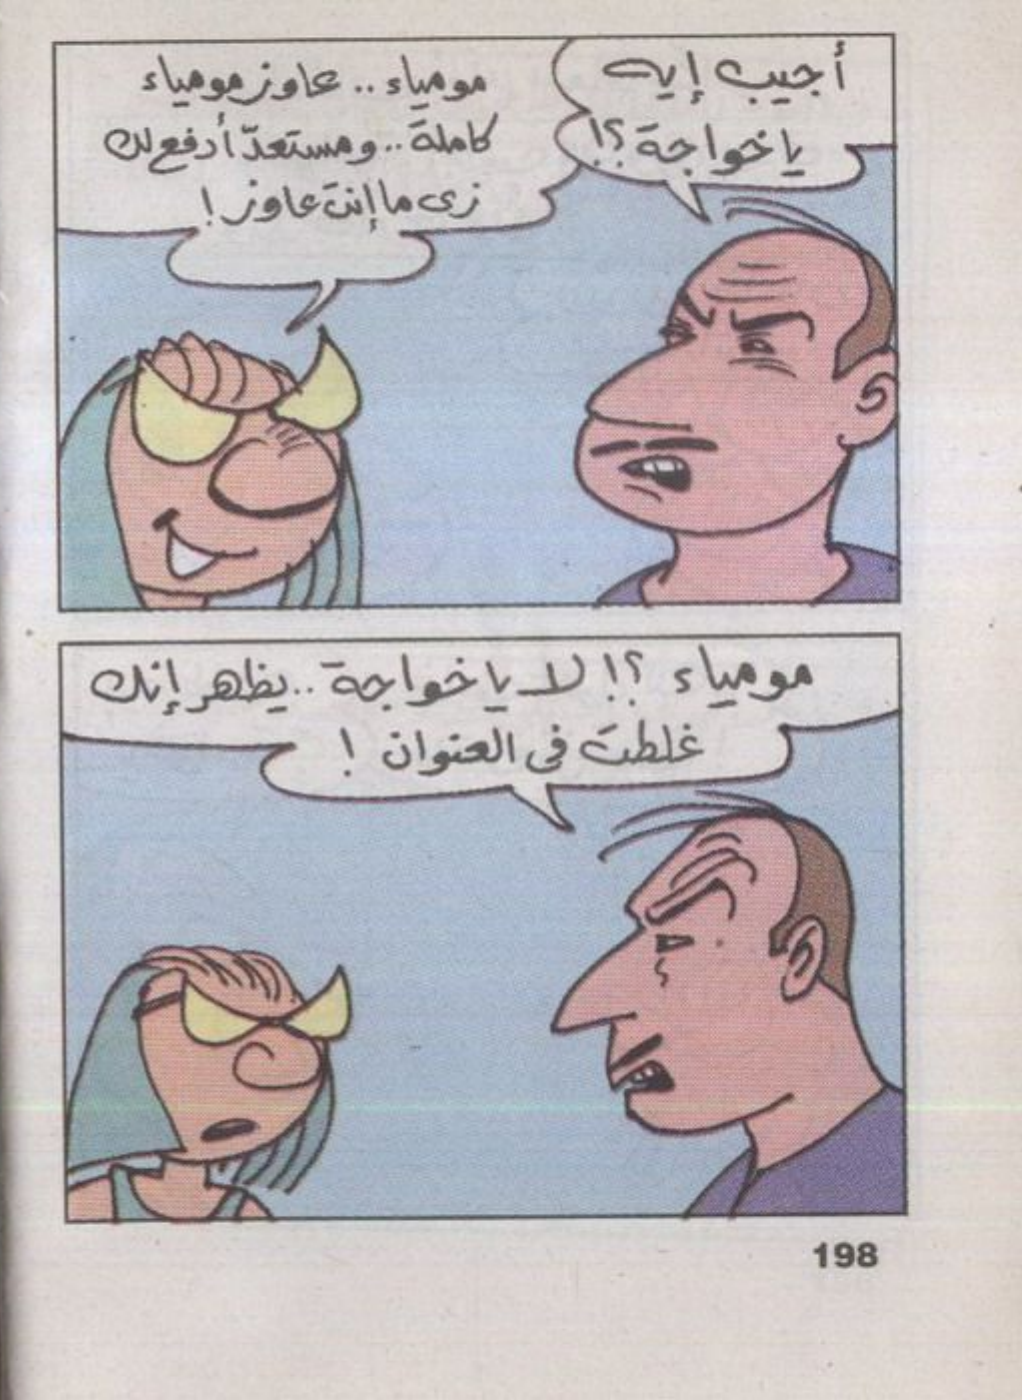 أجيب إيه
ياخواجة ؟!
مومياء .. عاوز مومياء
كاملة .. ومستعدّ أدفع لك
زى ما إنت عاوز !
مومياء ؟! لا ياخواجة .. يظهر إنك
غلطتَ فى العنوان !
198